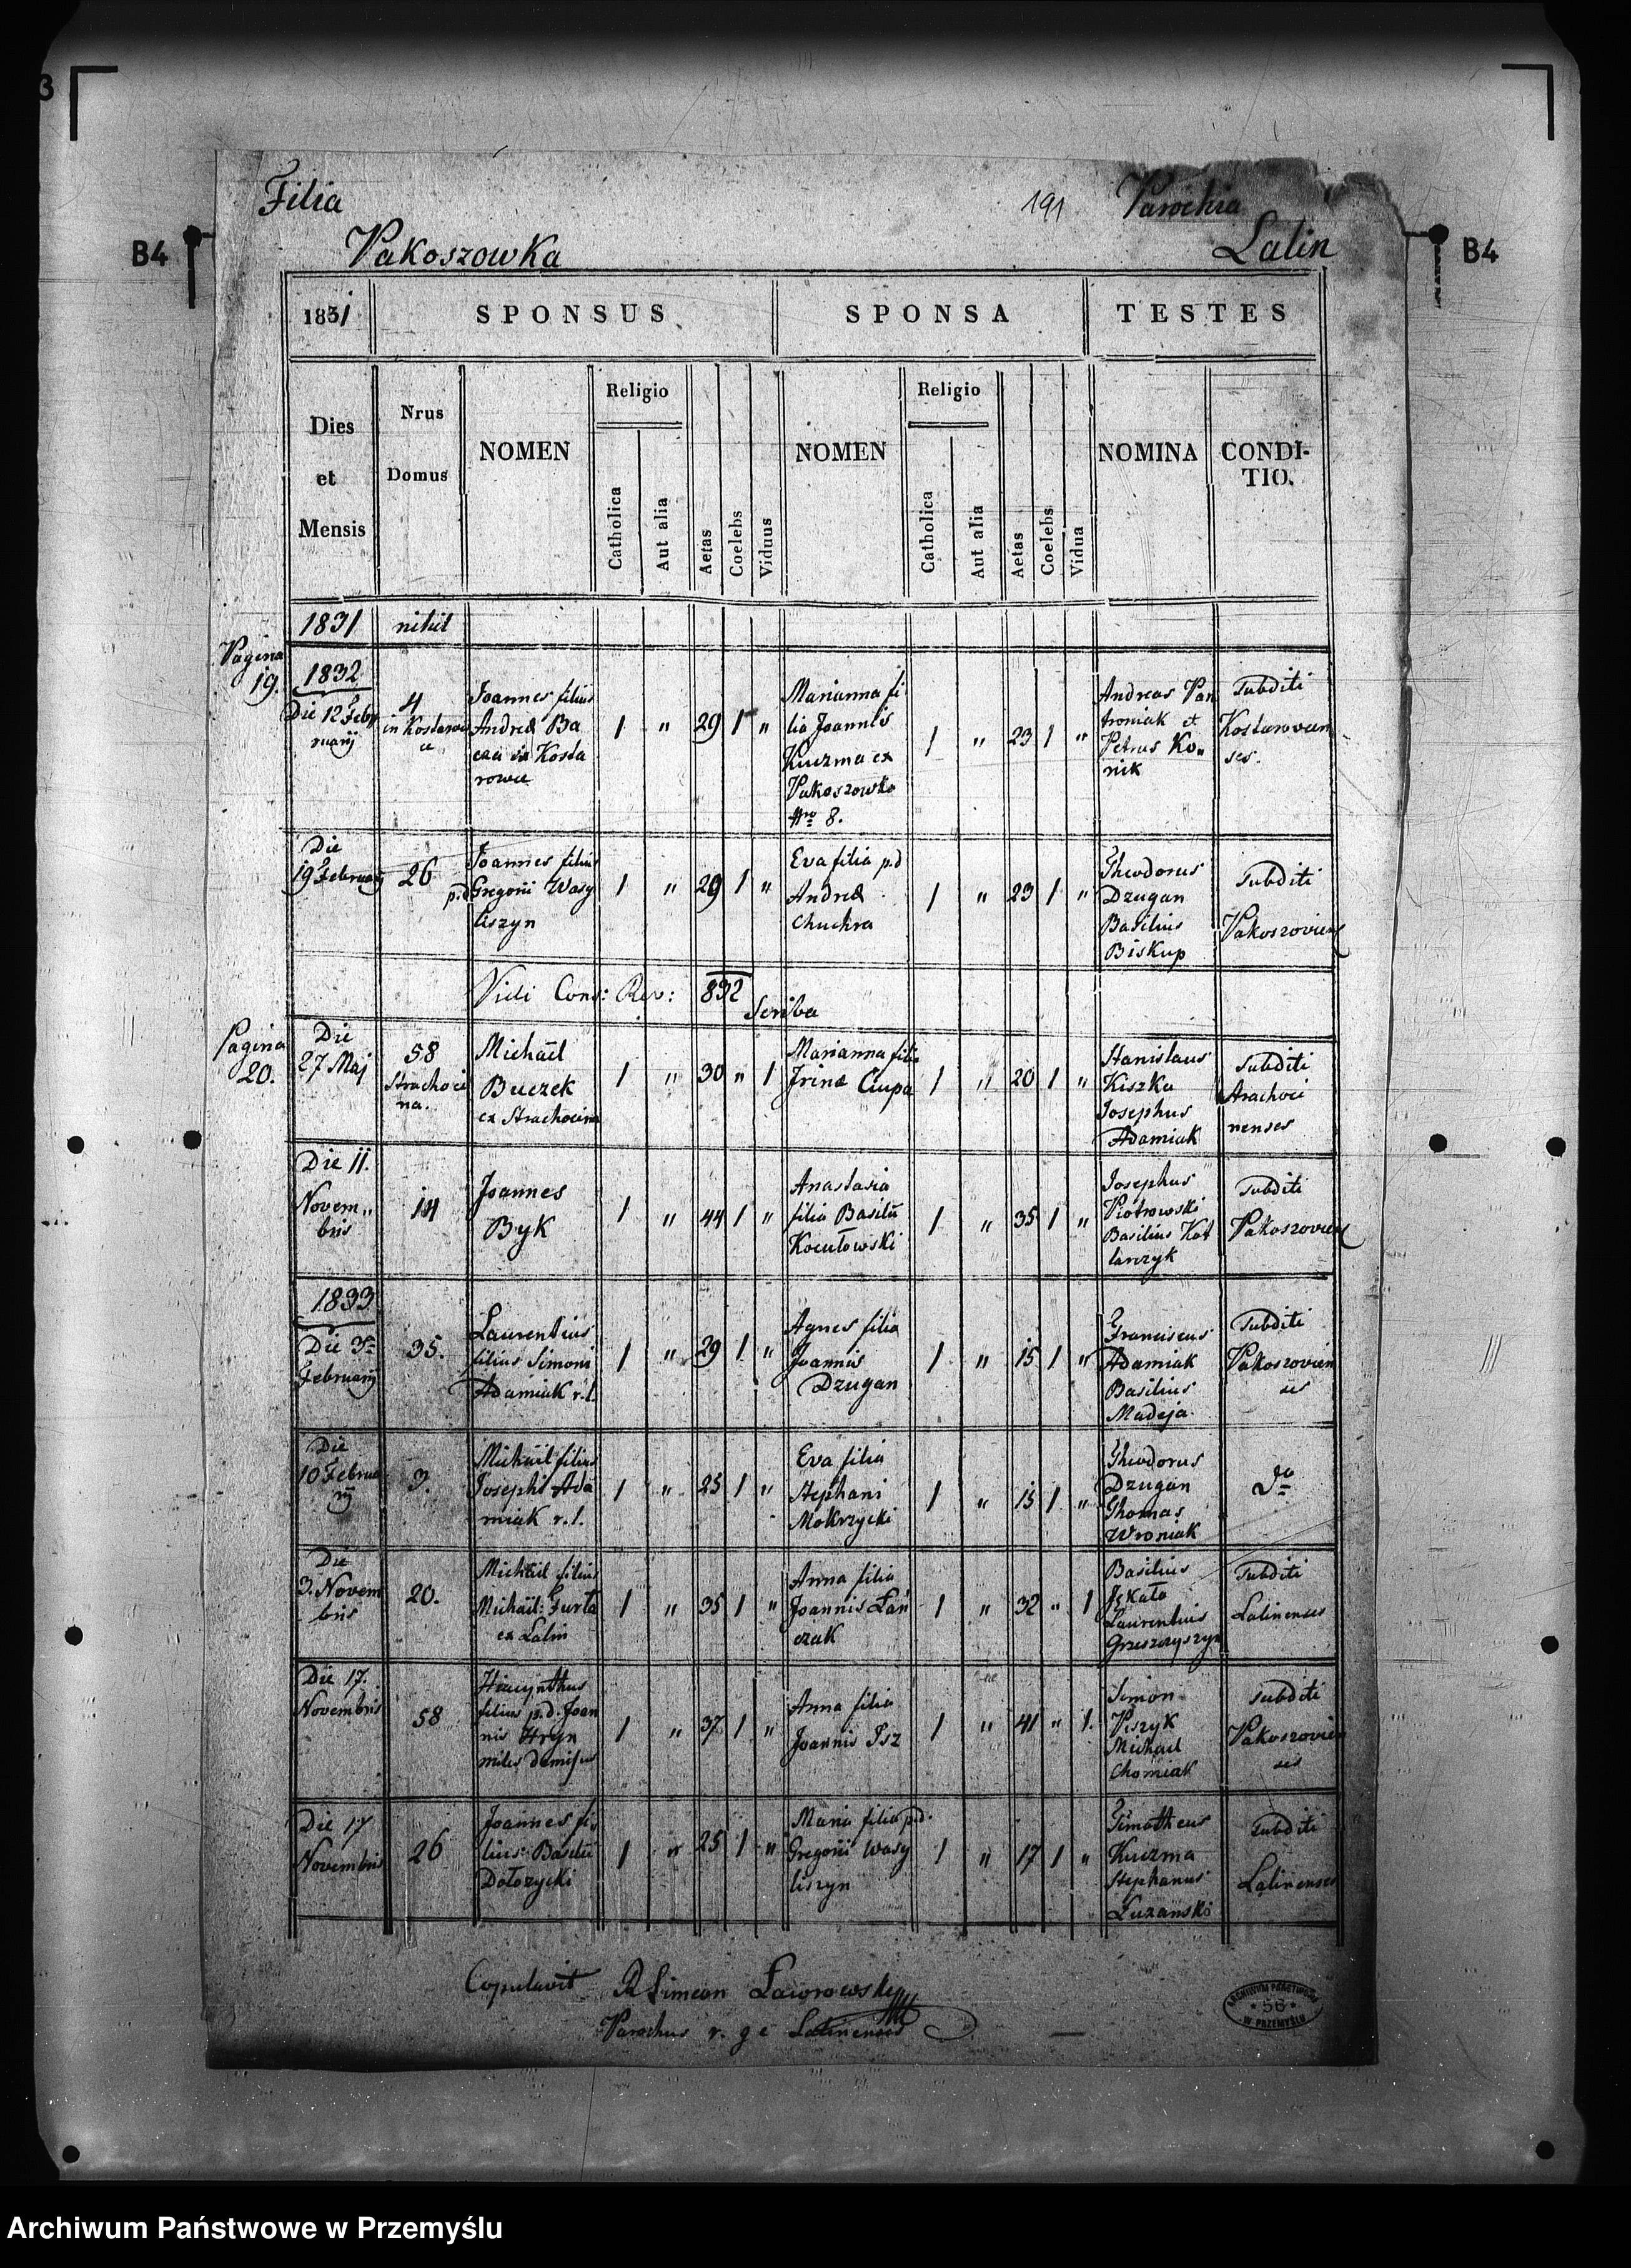 B4
B4
Filia
Pakoszowka
191
Parochia
Lalin
1831
SPONSUS
SPONSA
TESTES
Dies et Mensis
Nrus Domus
NOMEN
Religio
Catholica
Aut alia
Aetas
Coelebs
Viduus
NOMEN
Religio
Catholica
Aut alia
Aetas
Coelebs
Vidua
NOMINA
CONDI-
TIO.
1831 nihil
Pagina
19.
1832
Die 12 Feb
ruarij
4
in Kostarow
ce
Joannes filius
Andreæ Ba
in Kosta
rowce
1 " 29 1 "
Marianna fi
lia Joannis
Kuczma ex
Pakoszowka
Nro 8.
1 " 23 1 "
Andreas Pan
troniak et
Petrus Ko„
nik
Subditi
Kostaroven
ses.
Die
19 Februarij
26
Joannes filius
p.d Gregorii Wasy
liszyn
1 " 29 1 "
Eva filia p.d
Andreæ
Chuchra
1 " 23 1 "
Theodorus
Dzugan
Basilius
Biskup
Subditi
Vidi Cons: Rev: 832
Scriba
Pagina
20.
Die
27 Maj
58
Strachoci
na.
Michaël
Buczek
ex Strachocina
1 " 30 " 1
Marianna filia
Irinæ Ciupa
1 " 20 1 "
Stanislaus
Kiszka
Josephus
Adamiak
Subditi
Strachoci
nenses
Die 11.
Novem„
bris
14
Joannes
Byk
1 " 44 1 "
Anastasia
filia Basilii
Kocułowski
1 " 35 1 "
Josephus
Piotrowski
Basilius Kot
larczyk
Subditi
1833
Die 3a
Februarij
35.
Laurentius
filius Simoni
Adamiak r.l.
1 " 29 1 "
Agnes filia
Joannis
Dzugan
1 " 15 1 "
Franciscus
Adamiak
Basilius
Madeja
Subditi
Pakoszovien
ses
Die
10 Februa
rij
3.
Michaël filius
Josephi Ada
miak r.l.
1 " 25 1 "
Eva filia
Stephani
Mokrzycki
1 " 15 1 "
Theodorus
Dzugan
Thomas
Wroniak
do
Die
3. Novem
bris
20.
Michaël filius
Michaël: Gurta
ex Lalin
1 " 35 1 "
Anna filia
Joannis Łań
czak
1 " 32 " 1
Basilius
Jękała
Laurentius
Grzeszczyszyn
Subditi
Lalinenses
Die 17.
Novembris
58
Hiacynthus
filius p.d. Joan
nis Hryn
miles demissus
1 " 37 1 "
Anna filia
Joannis Isz
1 " 41 " 1.
Simon
Piszyk
Michael
Chomiak
Subditi
Pakoszovien
ses
Die 17
Novembris
26
Joannes fi„
lius Basilii
Dołozycki
1 " 25 1 "
Maria filia p.d.
Gregorii Wasy
liszyn
1 " 17 1 "
Timotheus
Kuczma
Stephanus
Łuzanski
Subditi
Lalinenses
Copulavit R Simeon Ławrowsky
Parochus r. g c Lalinensis
ARCHIWUM PAŃSTWOWE
* 56 *
W PRZEMYŚLU
Archiwum Państwowe w Przemyślu